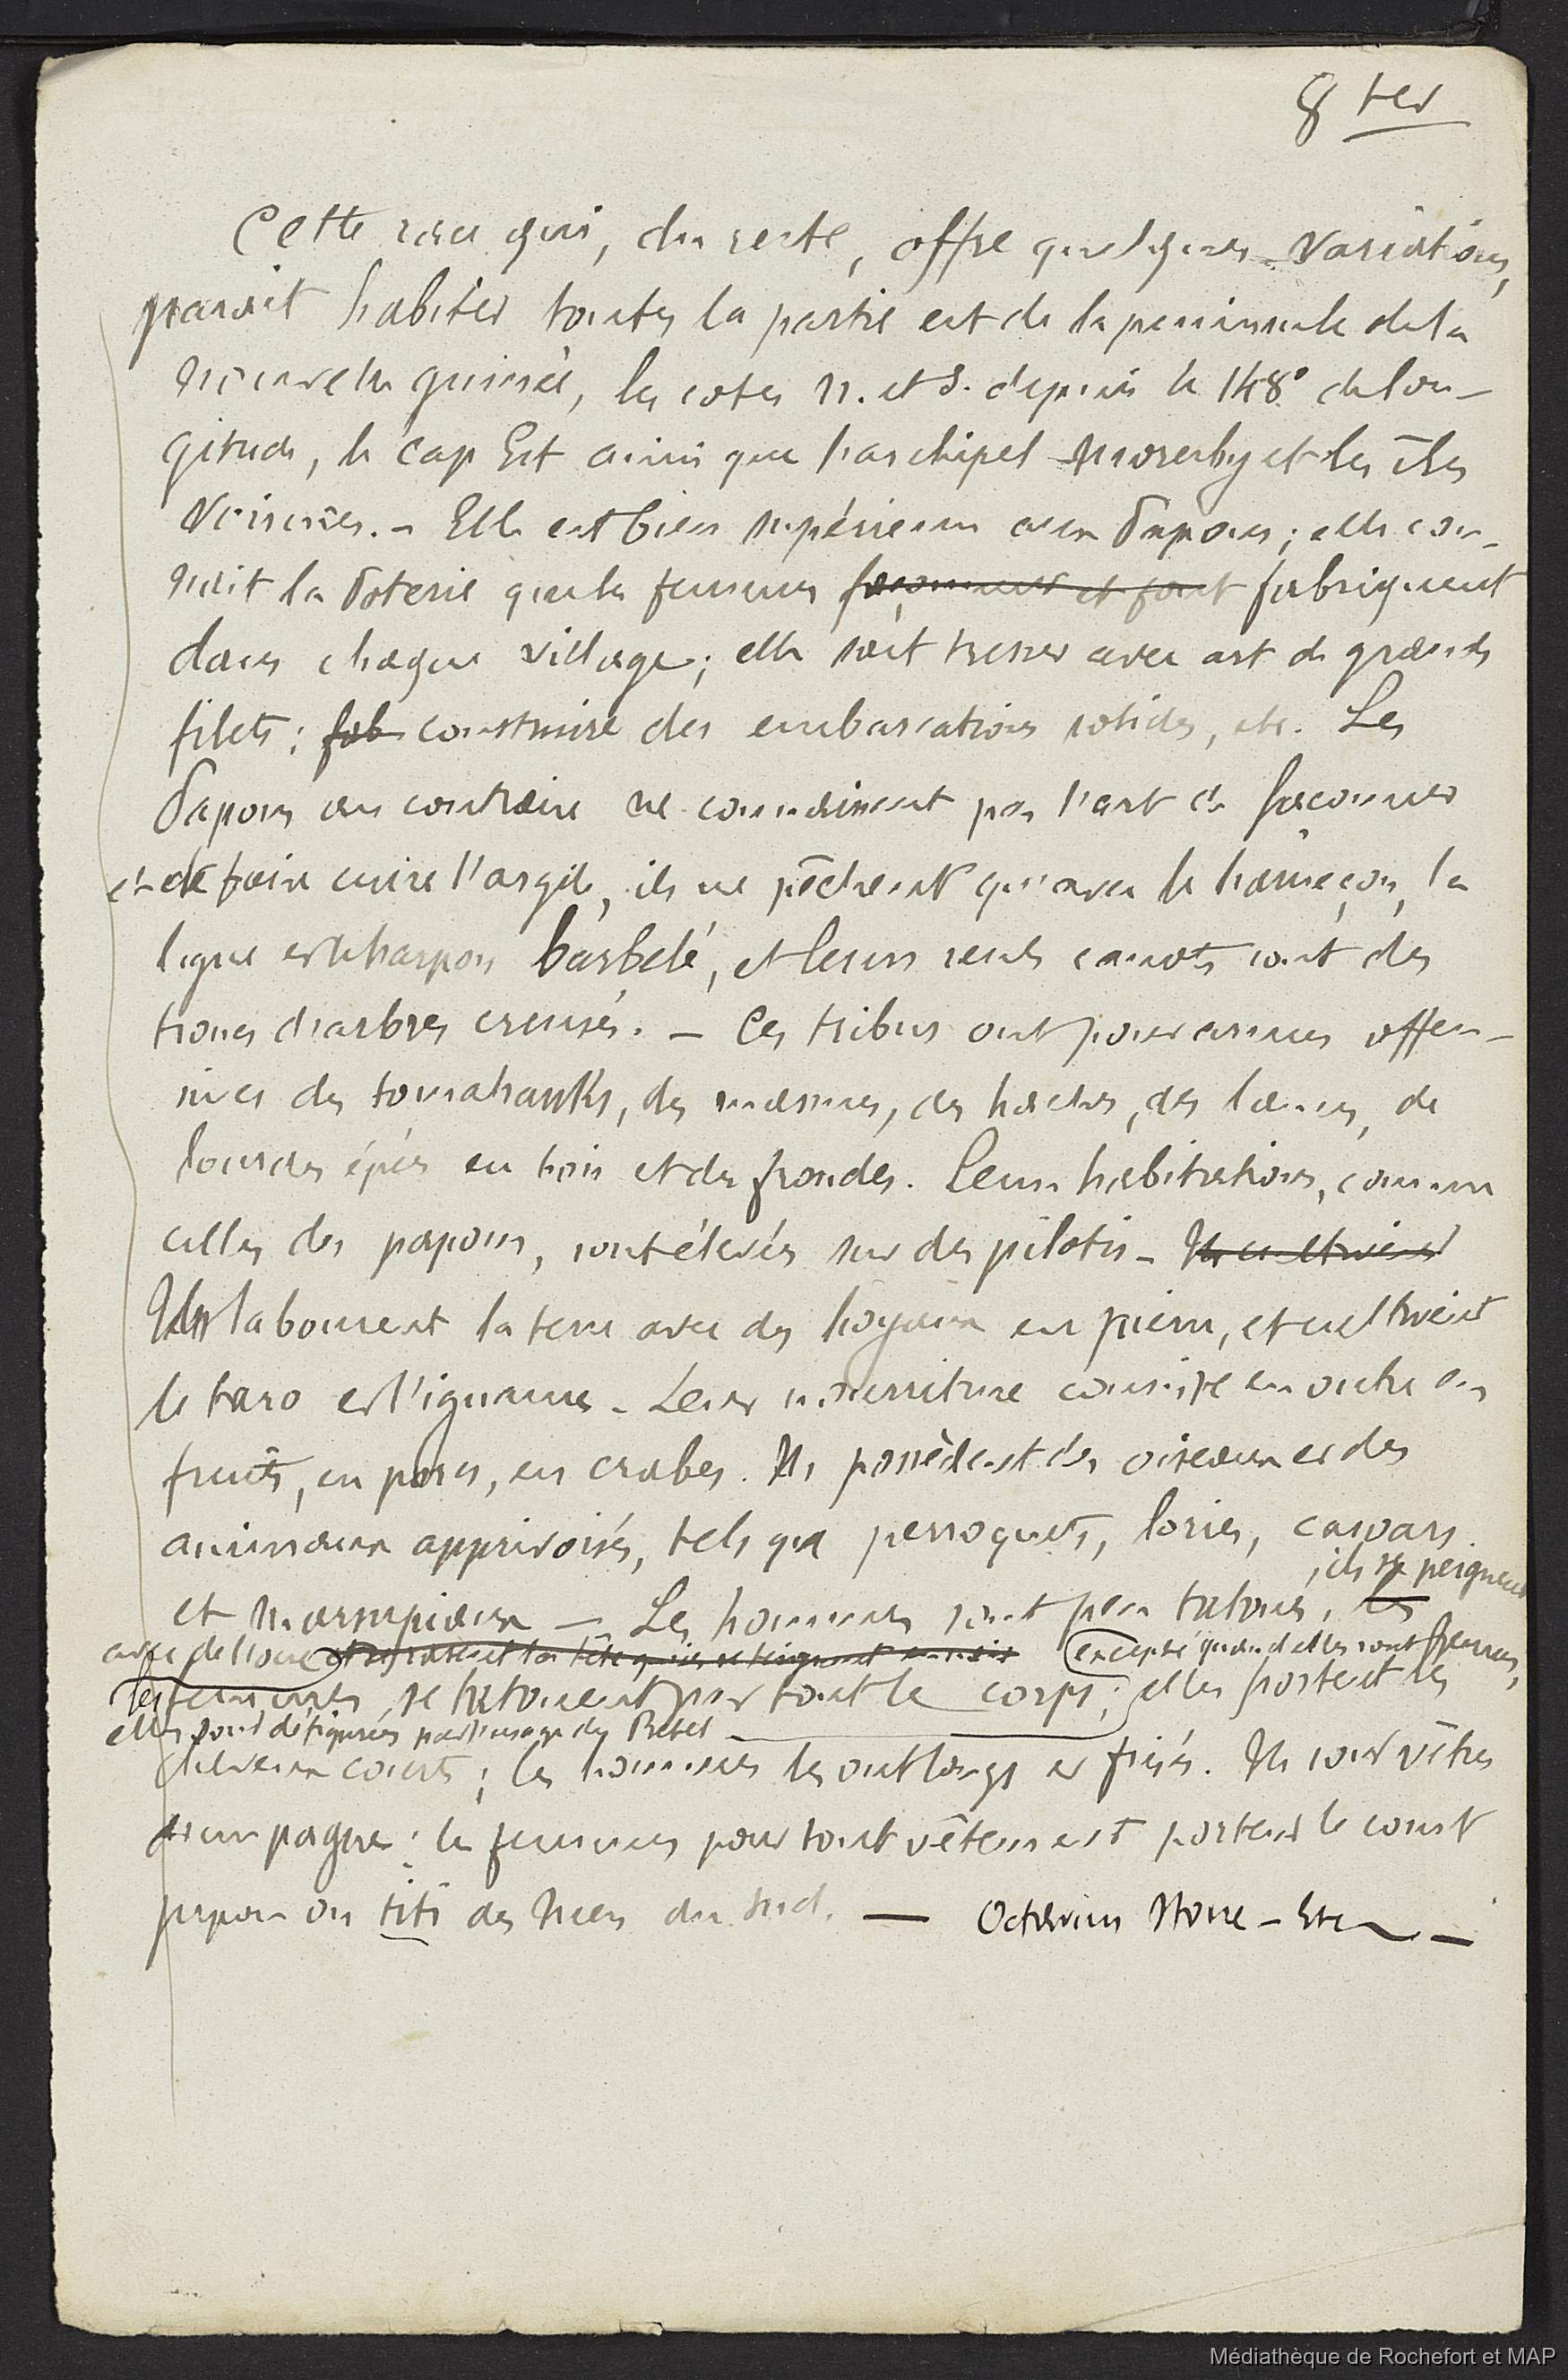 8 ter
Cette race qui, du reste, offre quelques variations,
parait habiter toutes la partie est de la peninsule de la
nouvelle guinée, les cotes N. et S. depuis le 148° de lon-
gitude, le cap Est ainsi que l'archipel Moresby et les îles
voisines. - Elle est bien supérieure aux Papous; elle con-
nait la Poterie que les femmes façonnent et font fabriquent
dans chaque village; elle sait tresser avec art de grands
filets; fab construire des embarcations solides, etc. Les
Papous au contraire ne connaissent pas l'art de façonner
et de faire cuire l'argile, ils ne pêchent qu'avec le hameçon, la
ligne et le harpon barbelé, et leurs seuls canots sont des
troncs d'arbres creusés. - Ces tribus ont pour armes offen-
sives des tomahawks, des massues, des haches, des lances, de
lourdes épées en bois et des frondes. Leurs habitations, comme
celles des papous, sont élevées sur des pilotis - Ils cultivent
Ils labourent la terre avec des hoyaux en pierre, et cultivent
le taro et l'igname - Leur nourriture consiste en outre en
fruits, en porcs, en crabes. Ils possèdent des oiseaux et des
animaux apprivoisés, tels que perroquets, lories, casoars
, ils se peignent
et marsupiaux - Les hommes sont peu tatoués, les
avec de l'ocre et se rasent la tête (excepté quand elles sont jeunes,
les femmes se tatouent par tout le corps; elles portent les
elles sont défigurées par l'usage du Betel
cheveux courts; les hommes les ont longs et frisés. Ils sont vêtus
d'un pagne; les femmes pour tout vêtement portent le court
jupon ou titi des mers du Sud. — Octavius Stone - Etc -
Médiathèque de Rochefort et MAP